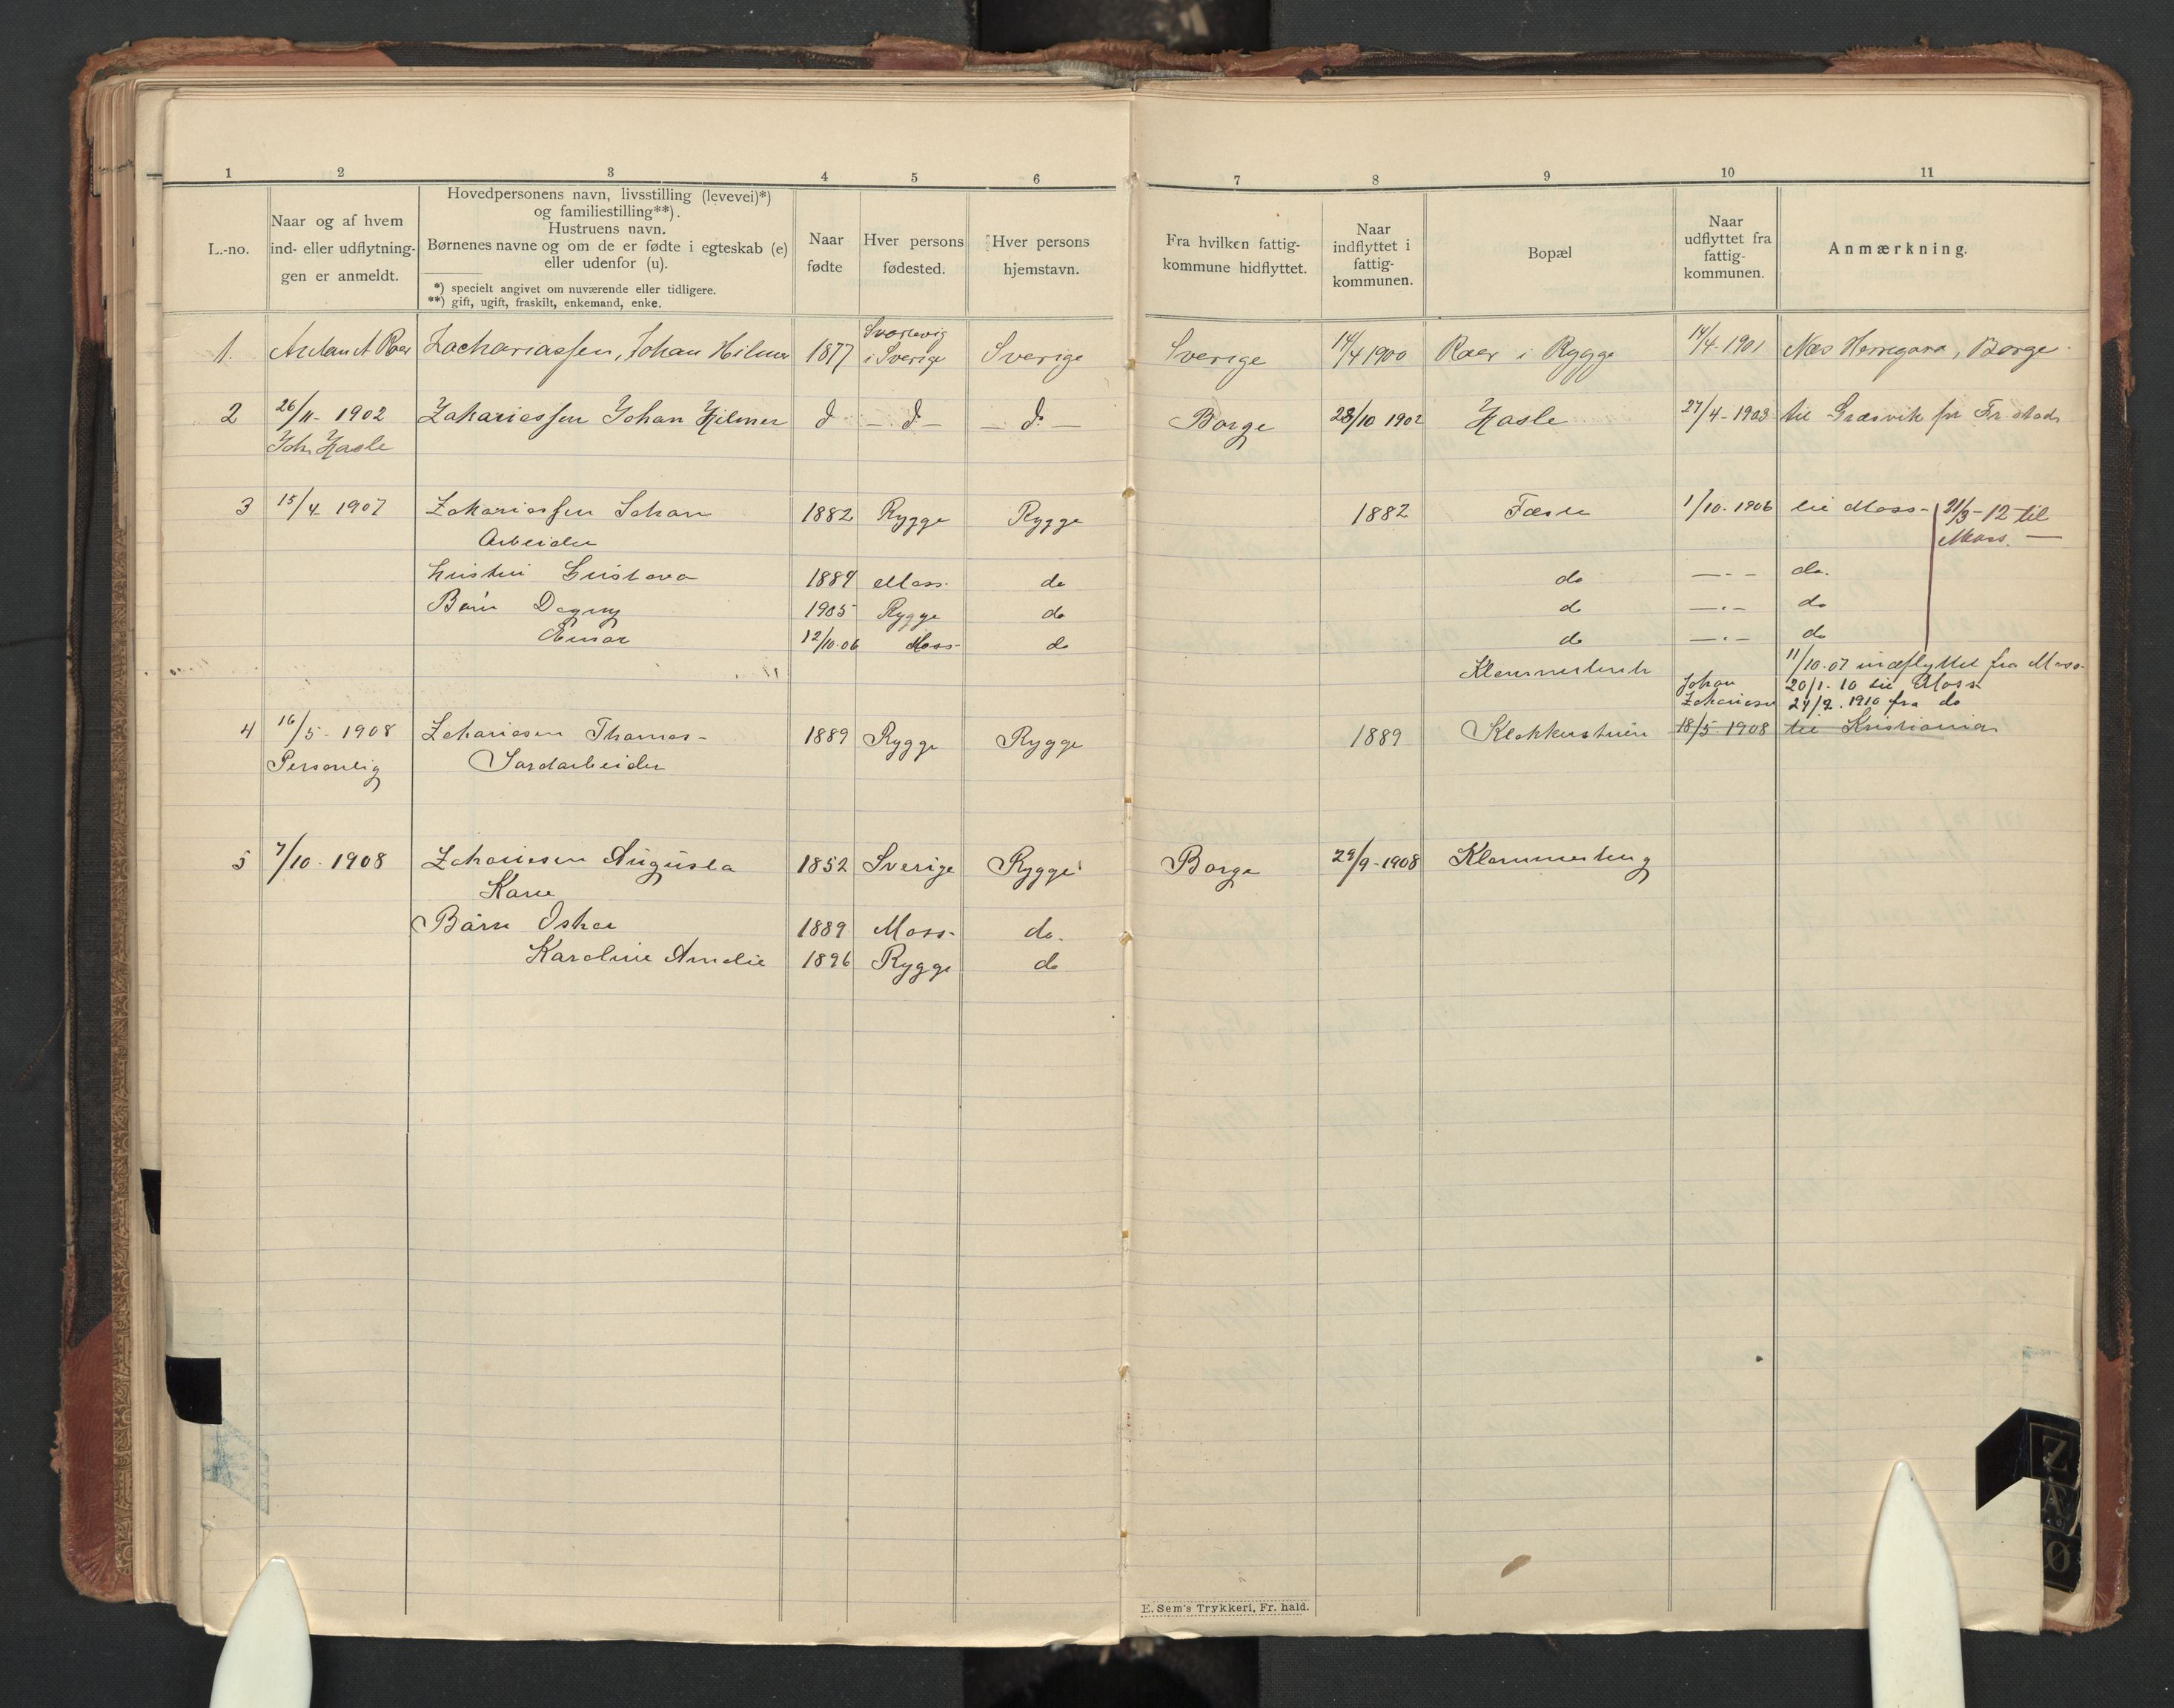 1 2 3 4 5 6 7 8 9 10 11
L.-no.
Naar og af hvem
ind- eller udflytning-
gen er anmeldt.
Hovedpersonens navn, livsstilling (levevei)*)
og familiestilling**).
Hustruens navn.
Børnenes navne og om de er fødte i egteskab (e)
eller udenfor (u).
*) specielt angivet om nuværende eller tidligere.
**) gift, ugift, fraskilt, enkemand, enke.
Naar
fødte
Hver persons
fødested.
Hver persons
hjemstavn.
Fra hvilken fattig-
kommune hidflyttet.
Naar
indflyttet i
fattig-
kommunen.
Bopæl
Naar
udflyttet fra
fattig-
kommunen.
Anmærkning.
1. Zachariassen, Johan Hilmer 1877 i Sverige Sverige Sverige 14/4 1900 Roer i Rygge 14/4-1901 Næs Herregaard, Borge.
2 26/11-1902 Zakariassen Johan Hilmer d - d - - d - Borge 28/10 1902 Hasle 27/4-1903 til Græsvik pr Fr.stad
Joh. Hasle
3 15/4 1907 Zakariassen Johan 1882 Rygge Rygge 1882 1/10-1906 til Moss- 21/3-12 til
Arbeider Moss. —
Gustava Moss. do do —.- do.
Børn Dagny 1905 Rygge do do —.- do
Einar 12/10-06 Moss- do do —.- do
11/10-07 indflyttet fra Moss-
Johan 20/1-10 til Moss
Zakariasen 1910 fra do
4 16/5-1908 Zakariasen Thomas- 1889 Rygge Rygge 1889 18/5-1908 til Kristiania
Personlig Jordarbeider
5 7/10-1908 Zakariasen Augusta 1852 Sverige Rygge Borge 29/9-1908
Kone
Børn Oskar 1889 Moss- do.
Karoline Amalie 1896 Rygge do
E. Sem's Trykkeri, Fr. hald.
Z
Ø